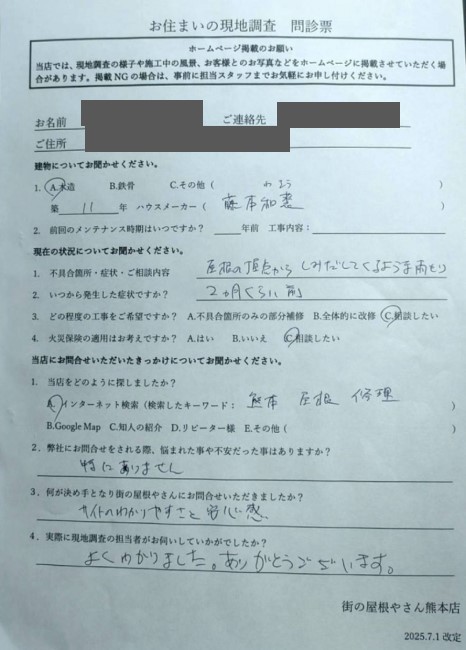 お住まいの現地調査　問診票
ホームページ掲載のお願い
当店では、現地調査の様子や施工中の風景、お客様とのお写真などをホームページに掲載させていただく場
合があります。掲載 NG の場合は、事前に担当スタッフまでお気軽にお申し付けください。
お名前　　　　　ご連絡先
ご住所
建物についてお聞かせください。
1. A.木造　B.鉄骨　C.その他（　　）
築 11 年　ハウスメーカー（　　）
2. 前回のメンテナンス時期はいつですか？　　年前　工事内容：
現在の状況についてお聞かせください。
1. 不具合箇所・症状・ご相談内容　屋根の頂点から しみだしてくるような雨もり
2. いつから発生した症状ですか？　2ヵ月くらい前
3. どの程度の工事をご希望ですか？ A.不具合箇所のみの部分補修 B.全体的に改修 C.相談したい
4. 火災保険の適用はお考えですか？ A.はい　B.いいえ　C.相談したい
当店にお問合せいただいたきっかけについてお聞かせください。
1. 当店をどのように探しましたか？
A.インターネット検索（検索したキーワード：　熊本　屋根　修理　）
B.Google Map　C.知人の紹介　D.リピーター様　E.その他（　　）
2．弊社にお問合せをされる際、悩まれた事や不安だった事はありますか？
特にありません
3．何が決め手となり街の屋根やさんにお問合せいただきましたか？
サイトのわかりやすさと安心感
4．実際に現地調査の担当者がお伺いしていかがでしたか？
よくわかりました。ありがとうございます。
街の屋根やさん熊本店
2025.7.1 改定